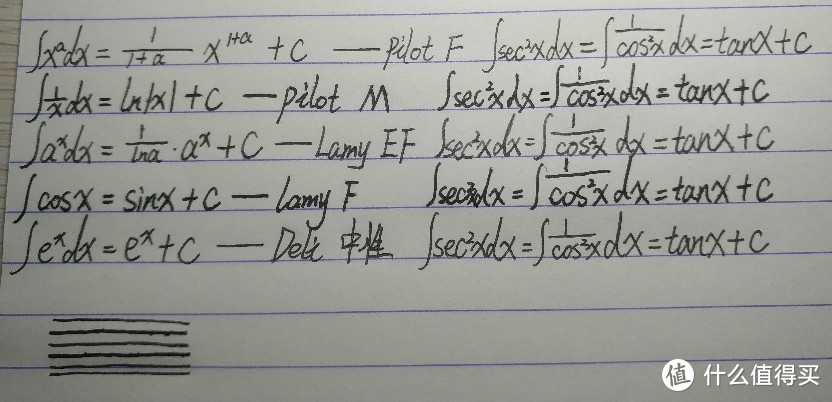 ∫xᵃdx = 1/(1+a) x¹⁺ᵃ + C — Pilot F ∫sec²xdx = ∫1/cos²x dx = tanx + C
∫1/x dx = ln|x| + C — Pilot M ∫sec²xdx = ∫1/cos²x dx = tanx + C
∫aˣdx = 1/lna · aˣ + C — Lamy EF ∫sec²xdx = ∫1/cos²x dx = tanx + C
∫cosx = sinx + C — Lamy F ∫sec²xdx = ∫1/cos²x dx = tanx + C
∫eˣdx = eˣ + C — Deli 中性 ∫sec²xdx = ∫1/cos²x dx = tanx + C
值 什么值得买